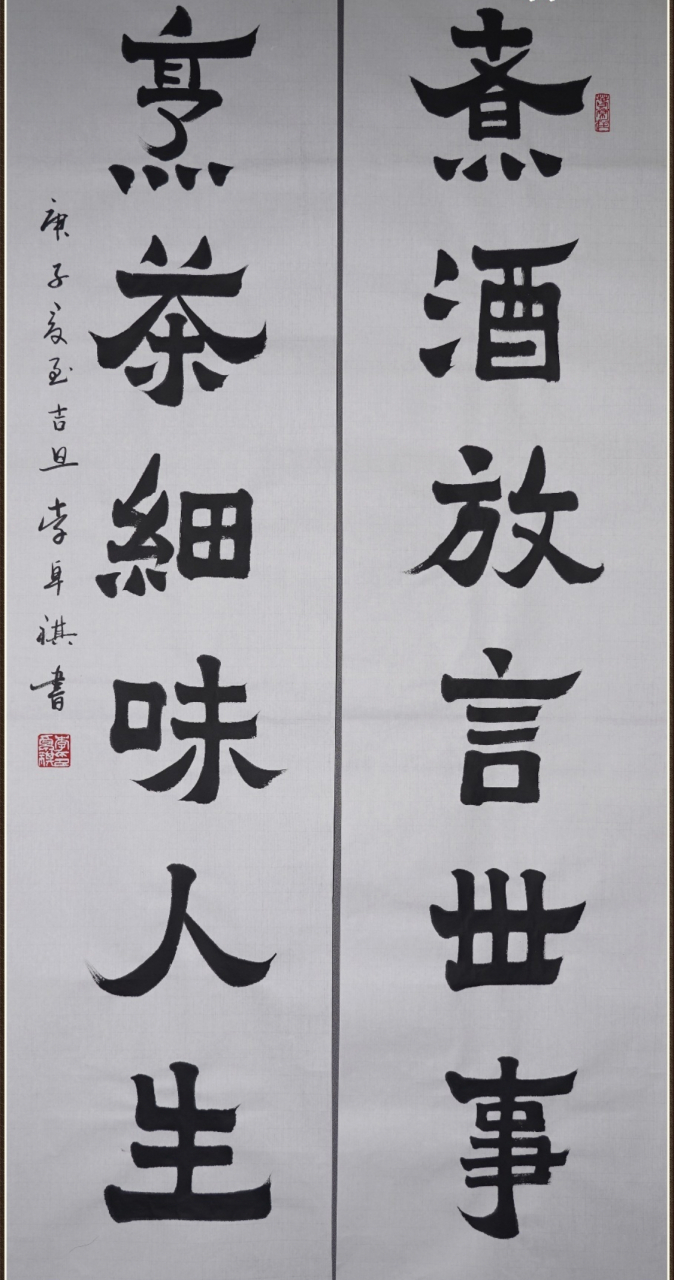 煮酒放言世事
烹茶細味人生
庚子夏至吉旦李卓祺書